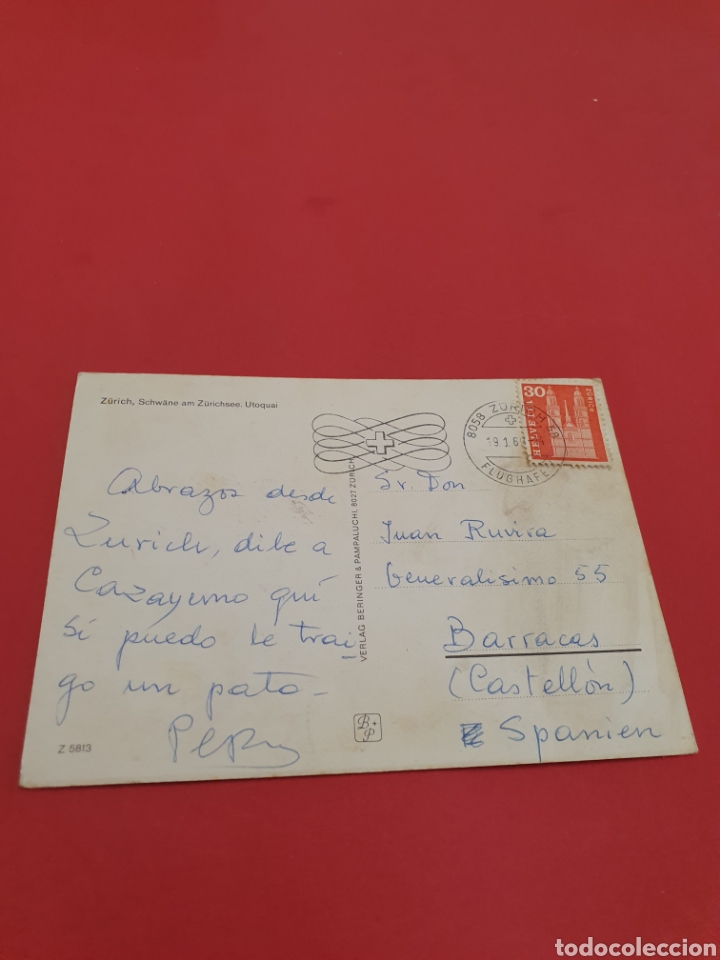 Zürich, Schwäne am Zürichsee. Utoquai
Abrazos desde
Zurich, dile a
Cazayemo qui
si puedo le trai
go un pato-
Z 5813
VERLAG BERINGER & PAMPALUCHI, 8027 ZÜRICH
B+P
8058 ZÜRICH 58
19.1.6
FLUGHAFEN
30
HELVETIA
ZÜRICH
Sr. Don
Juan Ruvira
Generalisimo 55
Barracas
(Castellón)
Spanien
todocoleccion